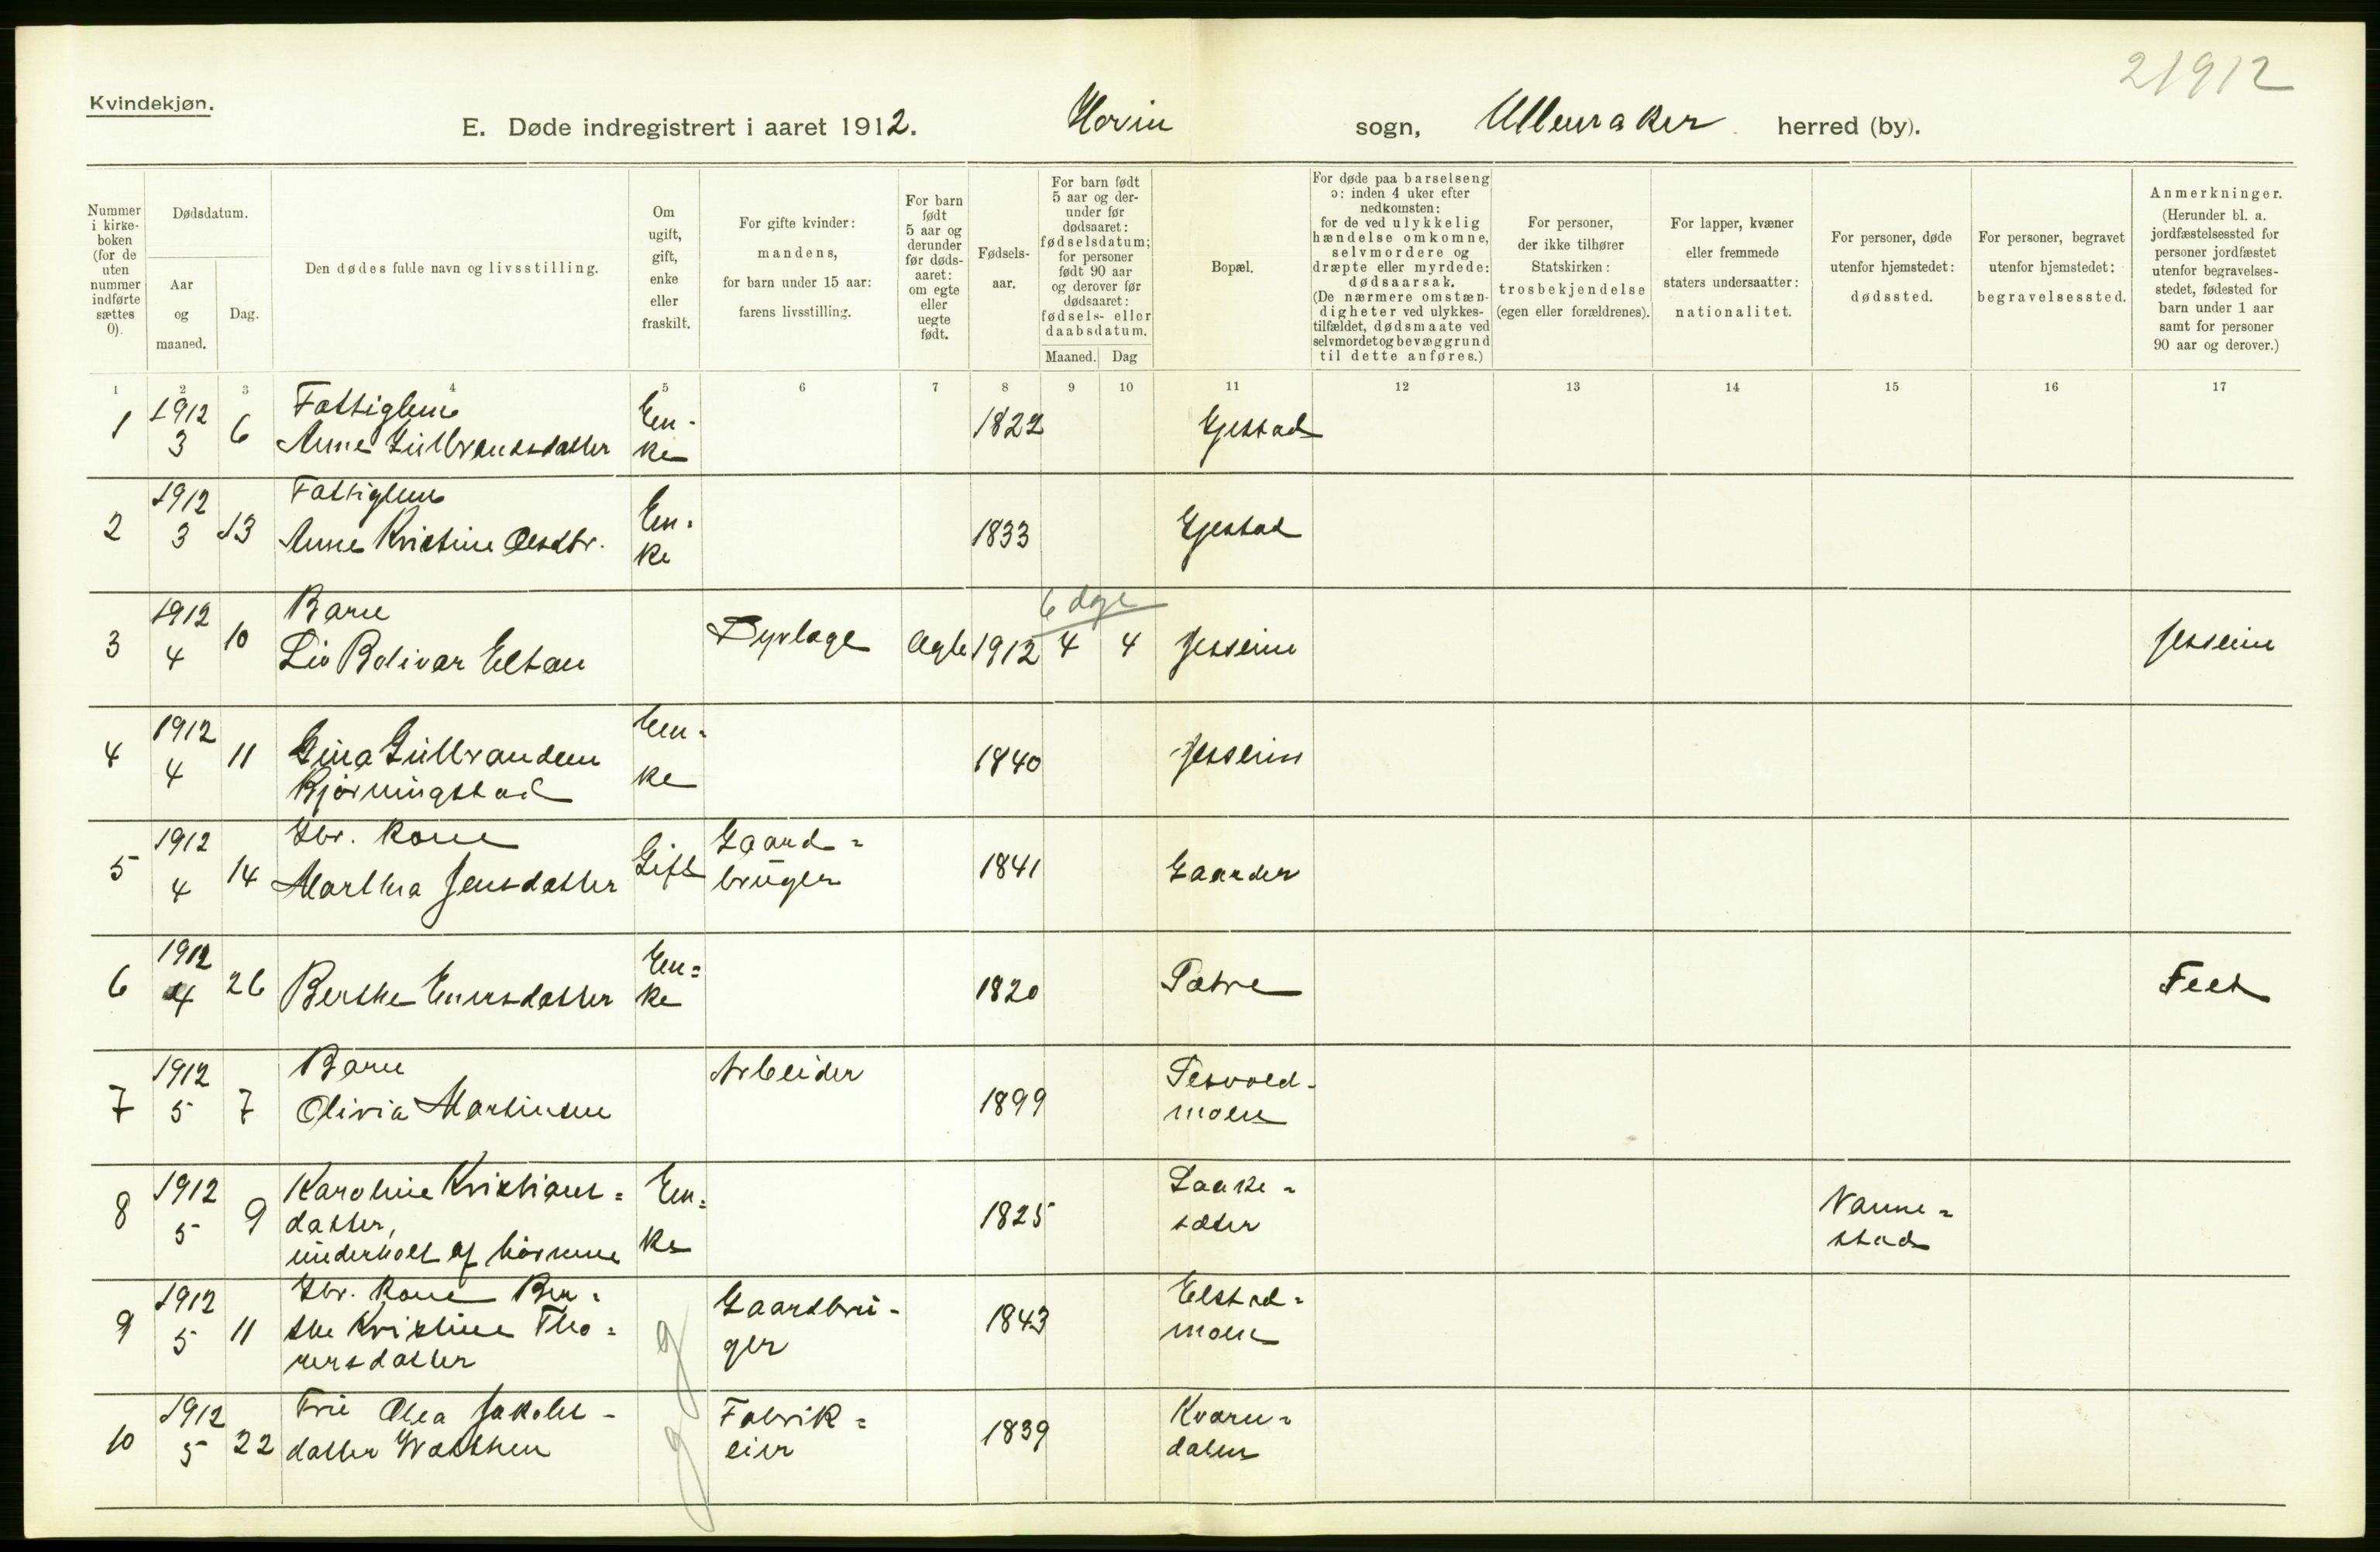 21912
Kvindekjøn.
E. Døde indregistrert i aaret 1912. Hovin sogn, Ullensaker herred (by).
Nummer i kirkeboken (for de uten nummer indførte sættes 0).
Dødsdatum.
Aar og maaned.
Dag.
Den dødes fulde navn og livsstilling.
Om ugift, gift, enke eller fraskilt.
For gifte kvinder: mandens, for barn under 15 aar: farens livsstilling.
For barn født 5 aar og derunder før dødsaaret: om egte eller uegte født.
Fødselsaar.
For barn født 5 aar og derunder før dødsaaret: fødselsdatum; for personer født 90 aar og derover før dødsaaret: fødsels- eller daabsdatum.
Maaned. Dag
Bopæl.
For døde paa barselseng ɔ: inden 4 uker efter nedkomsten: for de ved ulykkelig hændelse omkomne, selvmordere og dræpte eller myrdede: dødsaarsak. (De nærmere omstændigheter ved ulykkestilfældet, dødsmaate ved selvmordet og bevæggrund til dette anføres.)
For personer, der ikke tilhører Statskirken: trosbekjendelse (egen eller forældrenes).
For lapper, kvæner eller fremmede staters undersaatter: nationalitet.
For personer, døde utenfor hjemstedet: dødssted.
For personer, begravet utenfor hjemstedet: begravelsessted.
Anmerkninger. (Herunder bl. a. jordfæstelsessted for personer jordfæstet utenfor begravelsesstedet, fødested for barn under 1 aar samt for personer 90 aar og derover.)
1 2 3 4 5 6 7 8 9 10 11 12 13 14 15 16 17
1 1912 3 6 Fattiglem Anne Gulbrandsdatter Enke 1822 Gjestad
2 1912 3 13 Fattiglem Anne Kristine Olsdtr. Enke 1833 Gjestad
3 1912 4 10 Barn Liv Bolivar Eltan Dyrlæge Ægte 1912 6 dge 4 4 Jessheim Jessheim
4 1912 4 11 Gina Gulbrandsen Bjørningstad Enke 1840 Jessheim
5 1912 4 14 Gbr. kone Martha Jensdatter Gift Gaardbruger 1841 Gaarder
6 1912 4 26 Berthe Einersdatter Enke 1820 Tætre Feet
7 1912 5 7 Barn Olivia Martinsen Arbeider 1899 Tesvoldmoen
8 1912 5 9 Karoline Kristiansdatter, underholt af børnene Enke 1825 Laakesæter Nannestad
9 1912 5 11 Gbr. kone Berthe Kristine Thorersdatter g Gaardbruger 1843 Elstadmoen
10 1912 5 22 Frue Olea Jakobsdatter g Fabrikeier 1839 Kværndalen